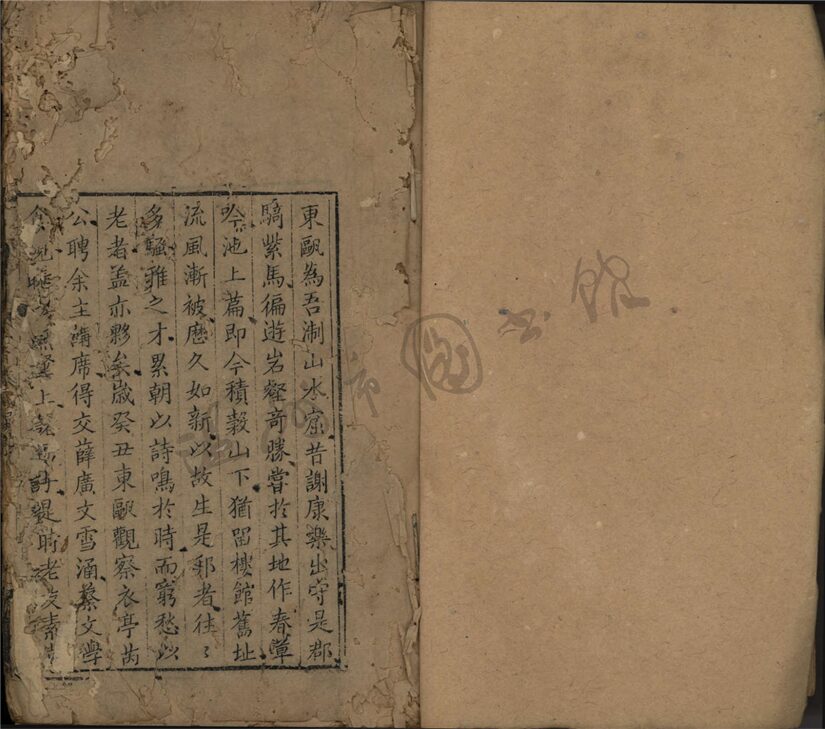 東甌為吾浙山水窟昔謝康樂出守是郡
騎紫馬徧遊岩壑竒勝嘗於其地作春草
吟池上篇即今積穀山下猶留樓館舊址
流風漸被歷久如新以故生是鄉者往〻
多騷雅之才累朝以詩鳴於時而窮愁以
老者盖亦夥矣歲癸丑東甌觀察衣亭芮
公聘余主講席得交薛廣文雪涵蔡文學
上 詩 時老友素
市圖
书馆